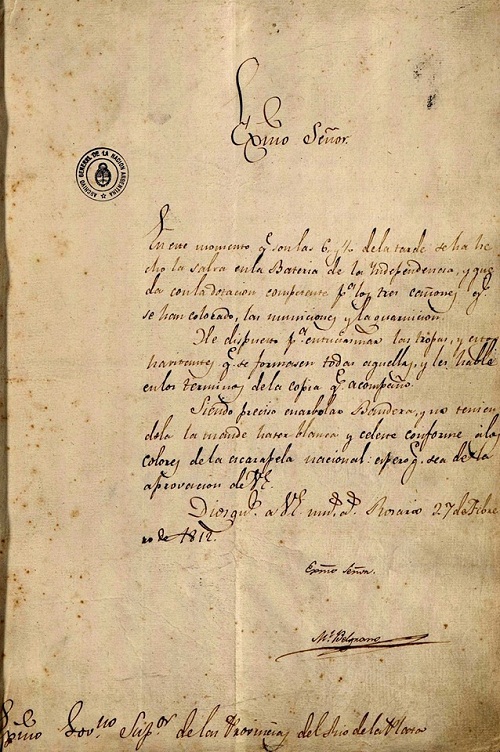 Exmo Señor.
ARCHIVO GENERAL DE LA NACION ARGENTINA
En este momento q.e son las 6 y ½ de la tarde se ha he
cho la salva en la Bateria de la Independencia, y que
da con la dotacion competente p.a los tres cañones q.e
se han colocado, las municiones y la guarnicion.
He dispuesto p.a entusiasmar las tropas, y estos
havitantes q.e se formasen todas aquellas, y les hablé
en los terminos de la copia q.e acompaño.
Siendo preciso enarbolar Bandera, y no tenien
dola la mandé hacer blanca y celeste conforme á los
colores de la escarapela nacional: espero q.e sea de la
aprovacion de VE.
Dios gu.e a VE m.s a.s Rosario 27 de Febre
ro de 1812.
Exmo Señor.
M.l Belgrano
Exmo Gov.no Sup.or de las Provincias del Rio de la Plata